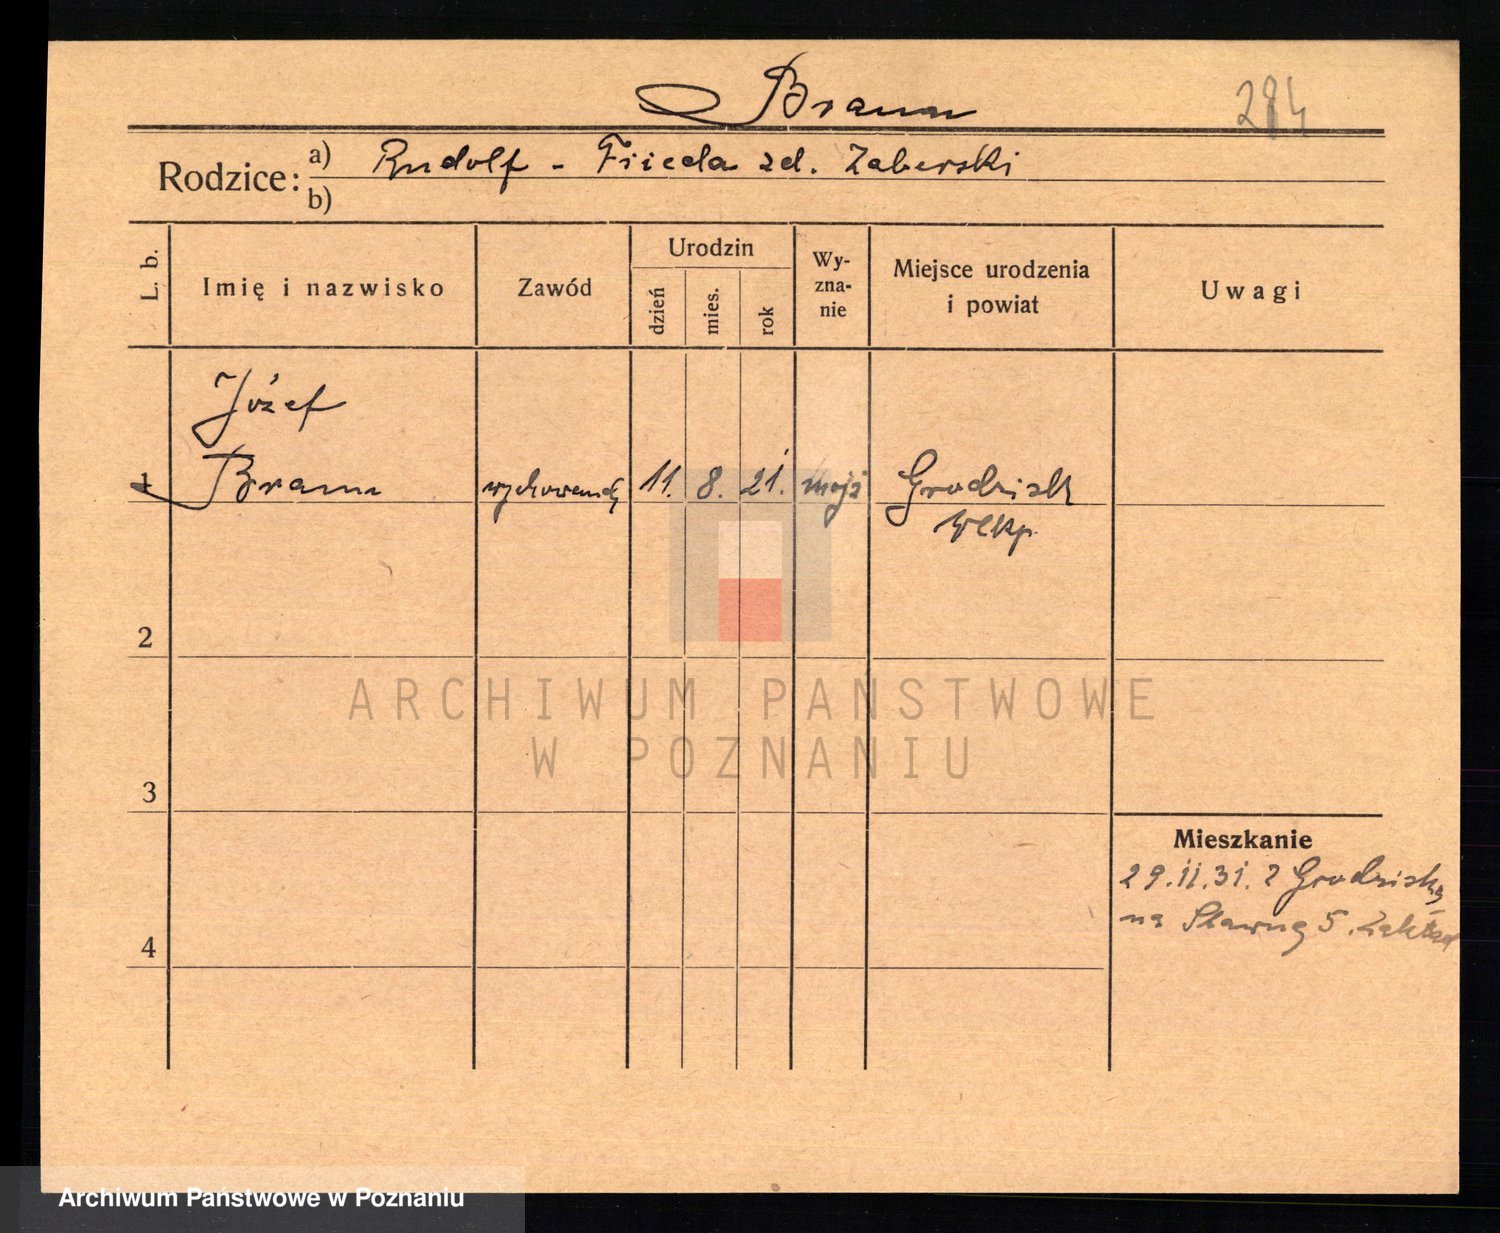 Braun
284
Rodzice: a) Rudolf - Frieda zd. Zaberski
b)
L. b.
Imię i nazwisko
Zawód
Urodzin
dzień
mies.
rok
Wy-
zna-
nie
Miejsce urodzenia
i powiat
Uwagi
Józef
1 Braun 11. 8. 21. mojż Grodzisk
Wlkp.
2
3
4
Mieszkanie
29.11.31. z Grodziska
na Stawną 5. Zakład
ARCHIWUM PAŃSTWOWE
W POZNANIU
Archiwum Państwowe w Poznaniu